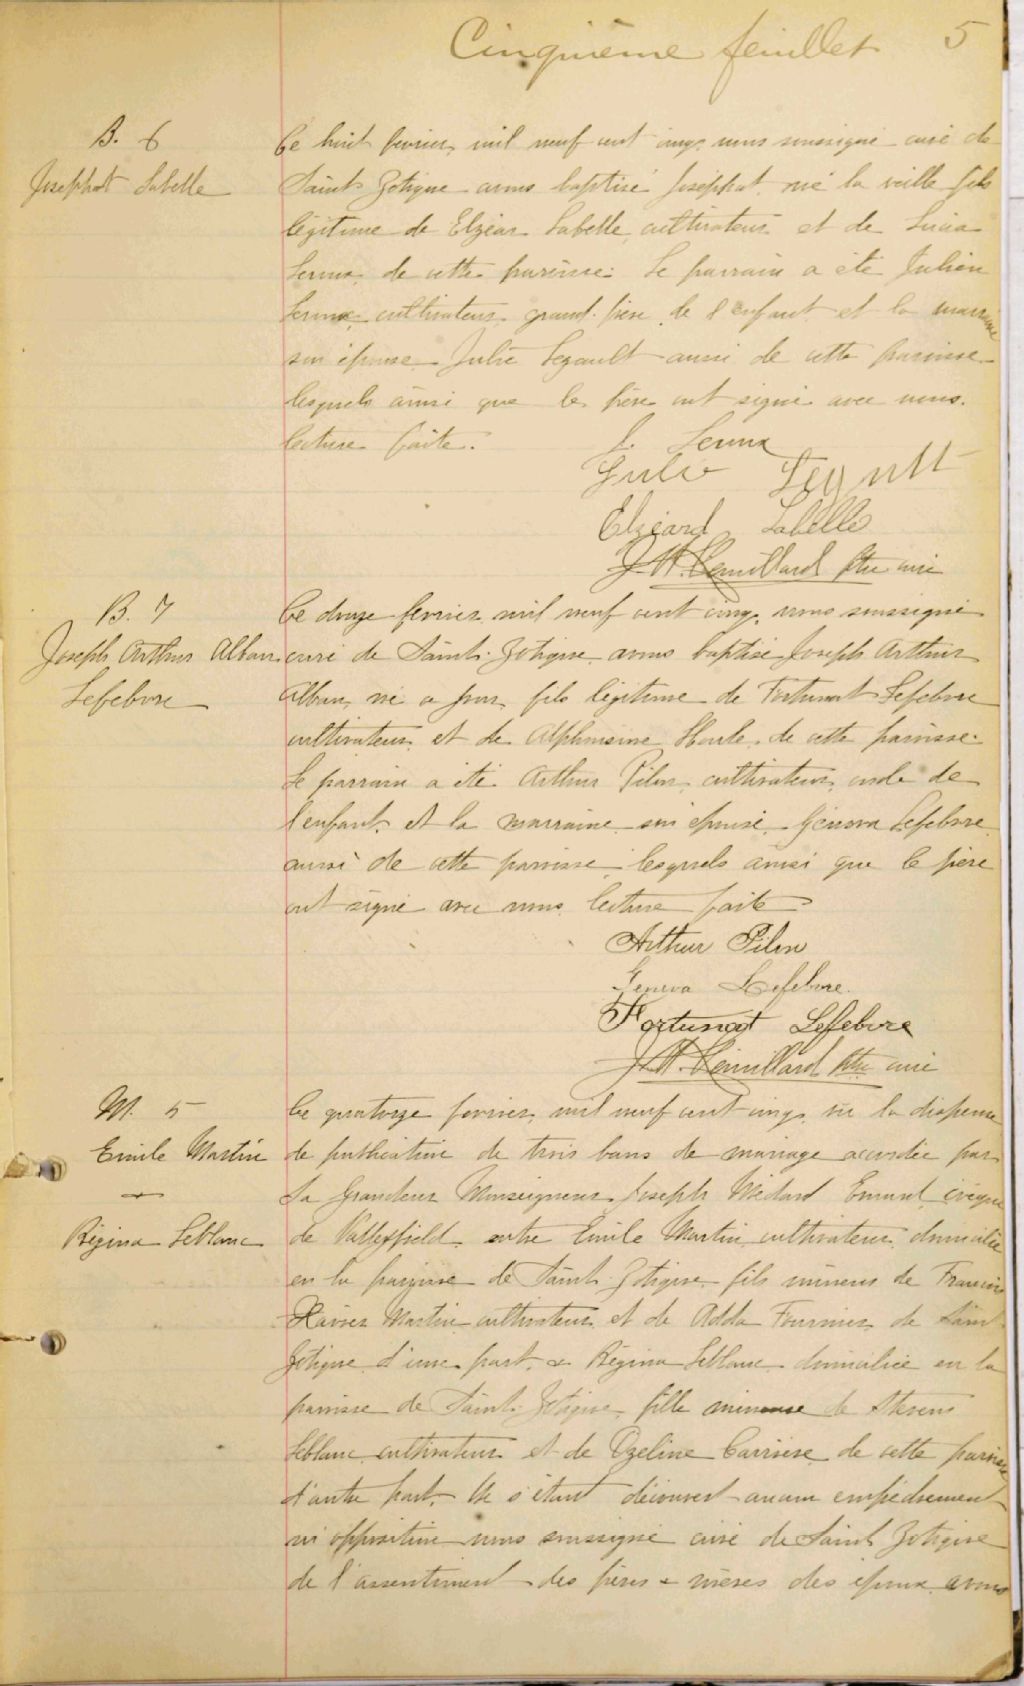 Cinquième feuillet 5
B. 6
Josephat Labelle
Ce huit fevrier mil neuf cent cinq, nous soussigné curé de
Saint Zotique avons baptisé Josephat né la veille fils
légitime de Elzéar Labelle cultivateur et de Lucia
Leroux, de cette paroisse. Le parrain a été Julien
Leroux cultivateur grand-père de l'enfant et la marraine
son épouse Julie Legault aussi de cette paroisse
lesquels ainsi que le père ont signé avec nous.
lecture faite.
J. Leroux
Julie Legault
Elzéard Labelle
Ptre curé
B. 7
Joseph Arthur Alban
Lefebvre
Ce douze fevrier mil neuf cent cinq, nous soussigné
curé de Saint Zotique avons baptisé Joseph Arthur
Alban, né ce jour fils légitime de Fortunat Lefebvre
cultivateur et de Alphonsine Houle de cette paroisse.
Le parrain a été Arthur Pilon cultivateur, oncle de
l'enfant, et la marraine son épouse Geneva Lefebvre
aussi de cette paroisse lesquels ainsi que le père
ont signé avec nous lecture faite
Arthur Pilon
Geneva Lefebvre.
Fortunat Lefebvre
Ptre curé
M. 5
Emile Martin
Régina Leblanc
Ce quatorze fevrier, mil neuf cent cinq, vu la dispense
de publication de trois bans de mariage accordée par
Sa Grandeur Monseigneur Joseph Médard Emard, évêque
de Valleyfield, entre Emile Martin cultivateur domicilié
en la paroisse de Saint Zotique fils mineur de François
Xavier Martin cultivateur et de Adda Fournier de Saint
Zotique d'une part, & Régina Leblanc domiciliée en la
paroisse de Saint Zotique, fille mineure de
Leblanc cultivateur et de Ozeline Carrière de cette paroisse
d'autre part. Ne s'étant découvert aucun empêchement
ni opposition nous soussigné curé de Saint Zotique
de l'assentiment des pères & mères des époux avons